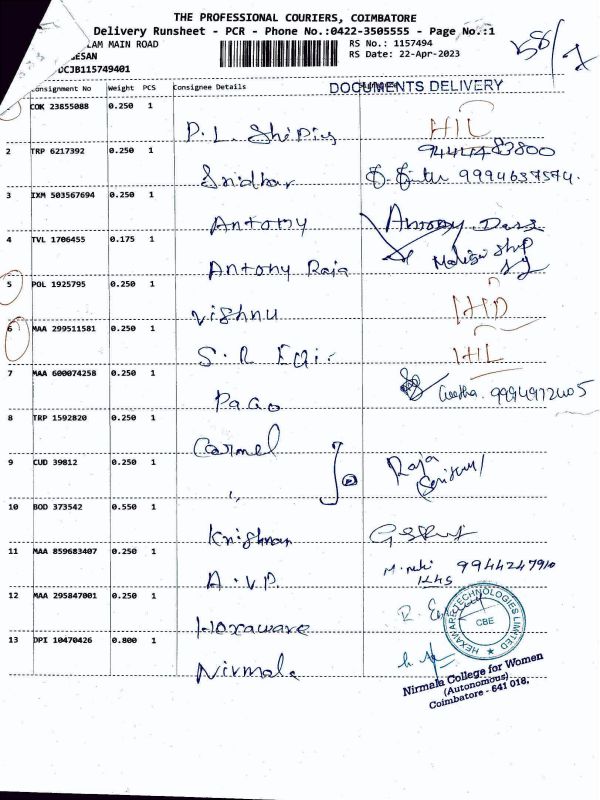 THE PROFESSIONAL COURIERS, COIMBATORE
Delivery Runsheet - PCR - Phone No.:0422-3505555 - Page No.:1
LAM MAIN ROAD RS No.: 1157494
ESAN RS Date: 22-Apr-2023
DCJB115749401
58/1
Consignment No Weight PCS Consignee Details DOCUMENTS DELIVERY
COK 23855088 0.250 1
P. L. Shipig HIL
2 TRP 6217392 0.250 1 9444483800
Sridhar 9994637574.
3 IXM 503567694 0.250 1
Antony Antony Dass
4 TVL 1706455 0.175 1
Antony Raja
5 POL 1925795 0.250 1
Vishnu HID
6 MAA 299511581 0.250 1
S. R HIL
7 MAA 600074258 0.250 1
PaGo Geetha. 9994972405
8 TRP 1592820 0.250 1
Carmel
9 CUD 39812 0.250 1
" Raja
10 BOD 373542 0.550 1
Krishnan
11 MAA 859683407 0.250 1
A.V.P. 9944247910
12 MAA 295847001 0.250 1
Hexaware
HEXAWARE TECHNOLOGIES LIMITED
CBE
13 DPI 10470426 0.800 1
Nirmala
Nirmala College for Women
(Autonomous)
Coimbatore - 641 018.